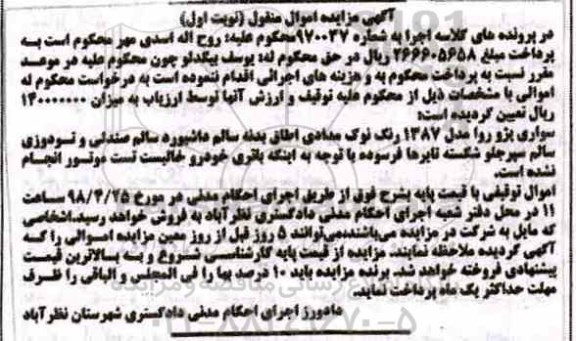 آگهی مزایده اموال منقول (نوبت اول)
در پرونده های کلاسه اجرا به شماره ۹۷۰۰۳۷ محکوم علیه: روح اله اسدی مهر محکوم است به
پرداخت مبلغ ۲۶۶۶۰۵۶۵۸ ریال در حق محکوم له: یوسف بیگدلو چون محکوم علیه در موعد
مقرر نسبت به پرداخت محکوم به و هزینه های اجرائی اقدام ننموده است به درخواست محکوم له
اموالی با مشخصات ذیل از محکوم علیه توقیف و ارزش آنها توسط ارزیاب به میزان ۱۴۰۰۰۰۰۰۰
ریال تعیین گردیده است:
سواری پژو روا مدل ۱۳۸۷ رنگ نوک مدادی اطاق بدنه سالم داشبورد سالم صندلی و تودوزی
سالم سپرجلو شکسته تایرها فرسوده با توجه به اینکه باتری خودرو خالیست تست موتور انجام
نشده است.
اموال توقیفی با قیمت پایه بشرح فوق از طریق اجرای احکام مدنی در مورخ ۹۸/۴/۲۵ ساعت
۱۱ در محل دفتر شعبه اجرای احکام مدنی دادگستری نظرآباد به فروش خواهد رسید.اشخاصی
که مایل به شرکت در مزایده می‌باشند،می‌توانند ۵ روز قبل از روز معین مزایده اموالی را که
آگهی گردیده ملاحظه نمایند. مزایده از قیمت پایه کارشناسی شروع و به بالاترین قیمت
پیشنهادی فروخته خواهد شد. برنده مزایده باید ۱۰ درصد بها را فی المجلس و الباقی را ظرف
مهلت حداکثر یک ماه پرداخت نماید.
دادورز اجرای احکام مدنی دادگستری شهرستان نظرآباد